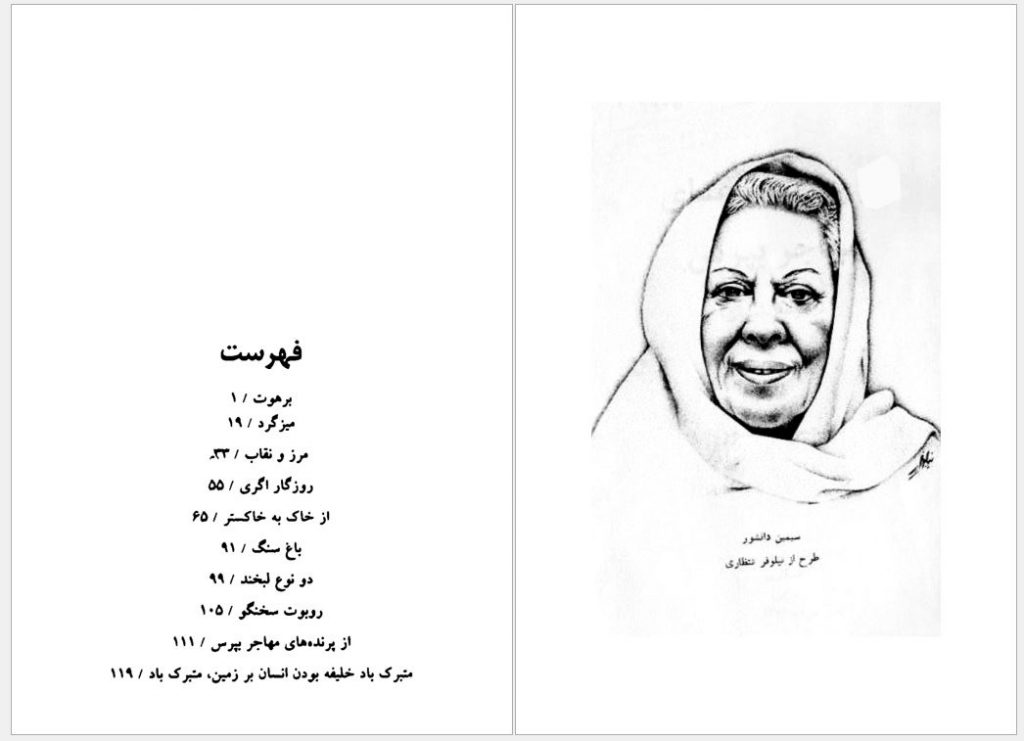 سیمین دانشور
طرح از نیلوفر انتظاری
فهرست
برهوت / ۱
میزگرد / ۱۹
مرز و نقاب / ۳۳
روزگار اگری / ۵۵
از خاک به خاکستر / ۶۵
باغ سنگ / ۹۱
دو نوع لبخند / ۹۹
روبوت سخنگو / ۱۰۵
از پرنده‌های مهاجر بپرس / ۱۱۱
متبرک باد خلیفه بودن انسان بر زمین، متبرک باد / ۱۱۹